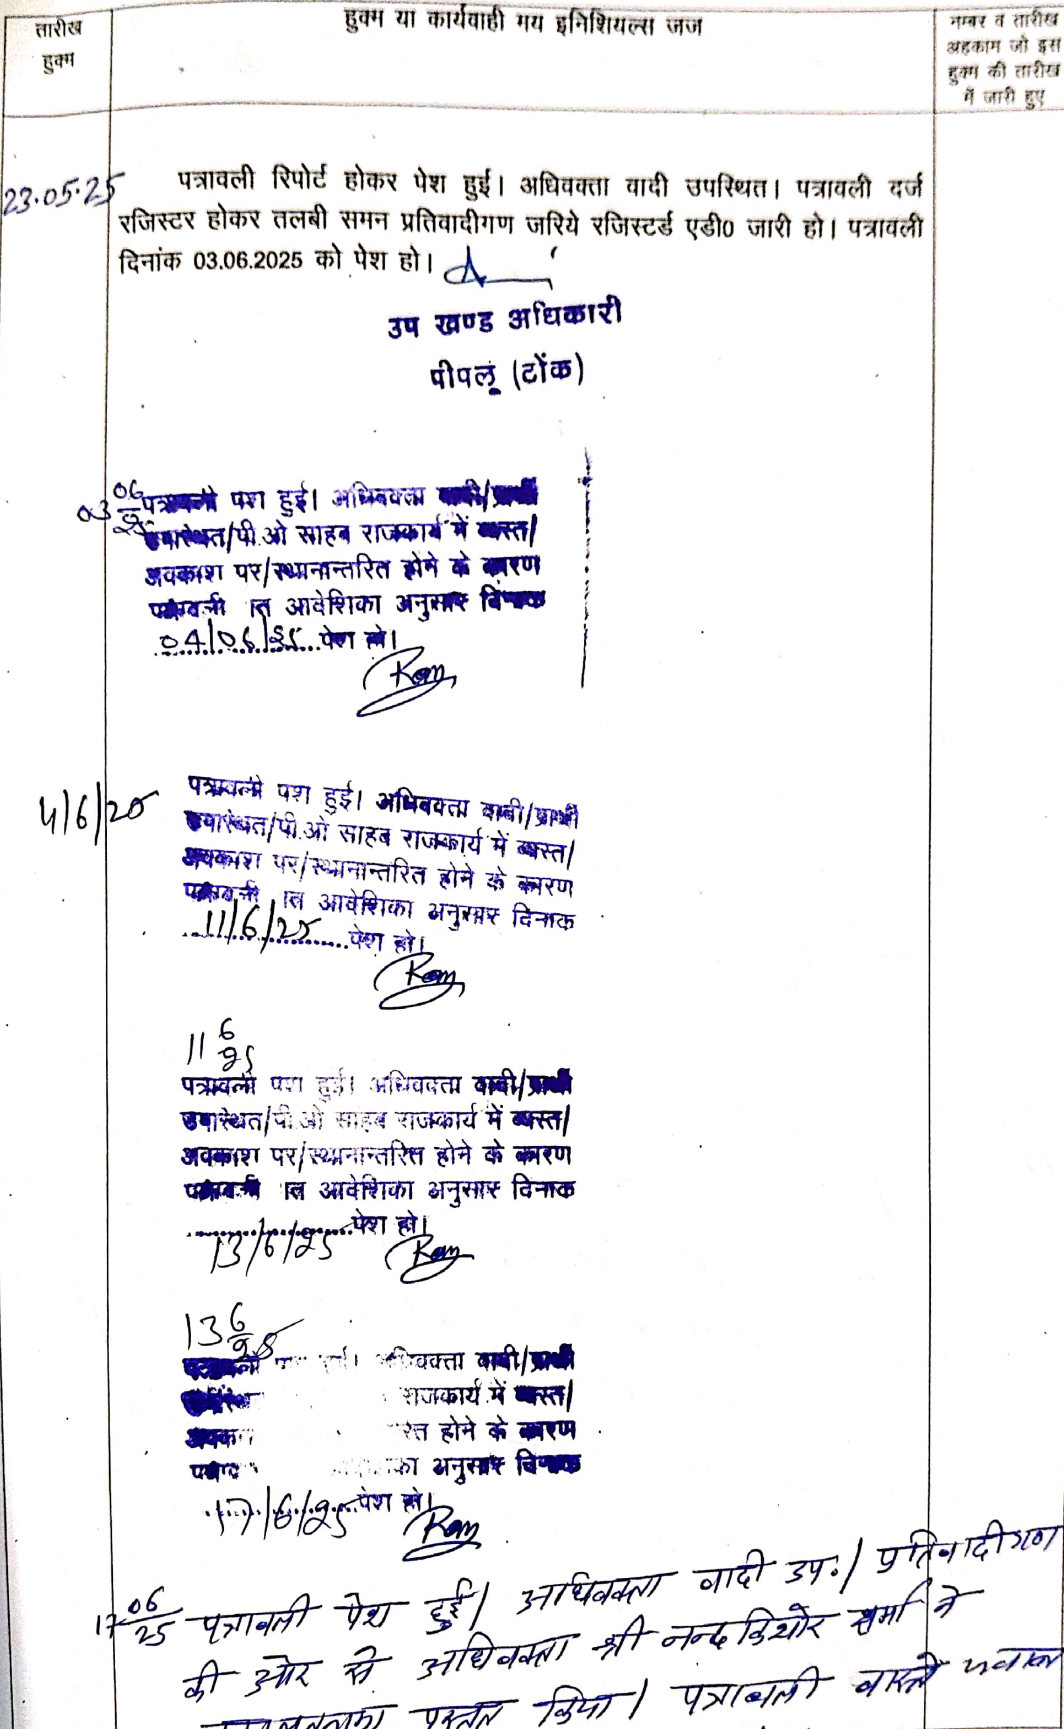 तारीख
हुक्म
हुक्म या कार्यवाही मय इनिशियल्स जज
नम्बर व तारीख
अहकाम जो इस
हुक्म की तारीख
में जारी हुए
23.05.25
पत्रावली रिपोर्ट होकर पेश हुई। अधिवक्ता वादी उपस्थित। पत्रावली दर्ज
रजिस्टर होकर तलबी समन प्रतिवादीगण जरिये रजिस्टर्ड एडी0 जारी हो। पत्रावली
दिनांक 03.06.2025 को पेश हो।
उप खण्ड अधिकारी
पीपलू (टोंक)
03 06/25
पत्रावली पेश हुई। अधिवक्ता वादी/प्रार्थी
उपस्थित/पी.ओ साहब राजकार्य में व्यस्त/
अवकाश पर/स्थानान्तरित होने के कारण
आदेशिका अनुसार दिनांक
04/06/25 पेश हो।
Ram
4/6/25
पत्रावली पेश हुई। अधिवक्ता वादी/प्रार्थी
उपस्थित/पी.ओ साहब राजकार्य में व्यस्त/
अवकाश पर/स्थानान्तरित होने के कारण
आदेशिका अनुसार दिनांक
11/6/25 पेश हो।
Ram
11 6/25
पत्रावली पेश हुई। अधिवक्ता वादी/प्रार्थी
उपस्थित/पी.ओ साहब राजकार्य में व्यस्त/
अवकाश पर/स्थानान्तरित होने के कारण
आदेशिका अनुसार दिनांक
13/6/25 पेश हो।
Ram
13 6/25
पत्रावली अधिवक्ता वादी/प्रार्थी
राजकार्य में व्यस्त/
होने के कारण
अनुसार दिनांक
17/6/25 पेश हो।
Ram
17 06/25
पत्रावली पेश हुई। अधिवक्ता वादी उप.। प्रतिवादीगण
की ओर से अधिवक्ता श्री नन्दकिशोर शर्मा ने
प्रस्तुत किया। पत्रावली वास्ते